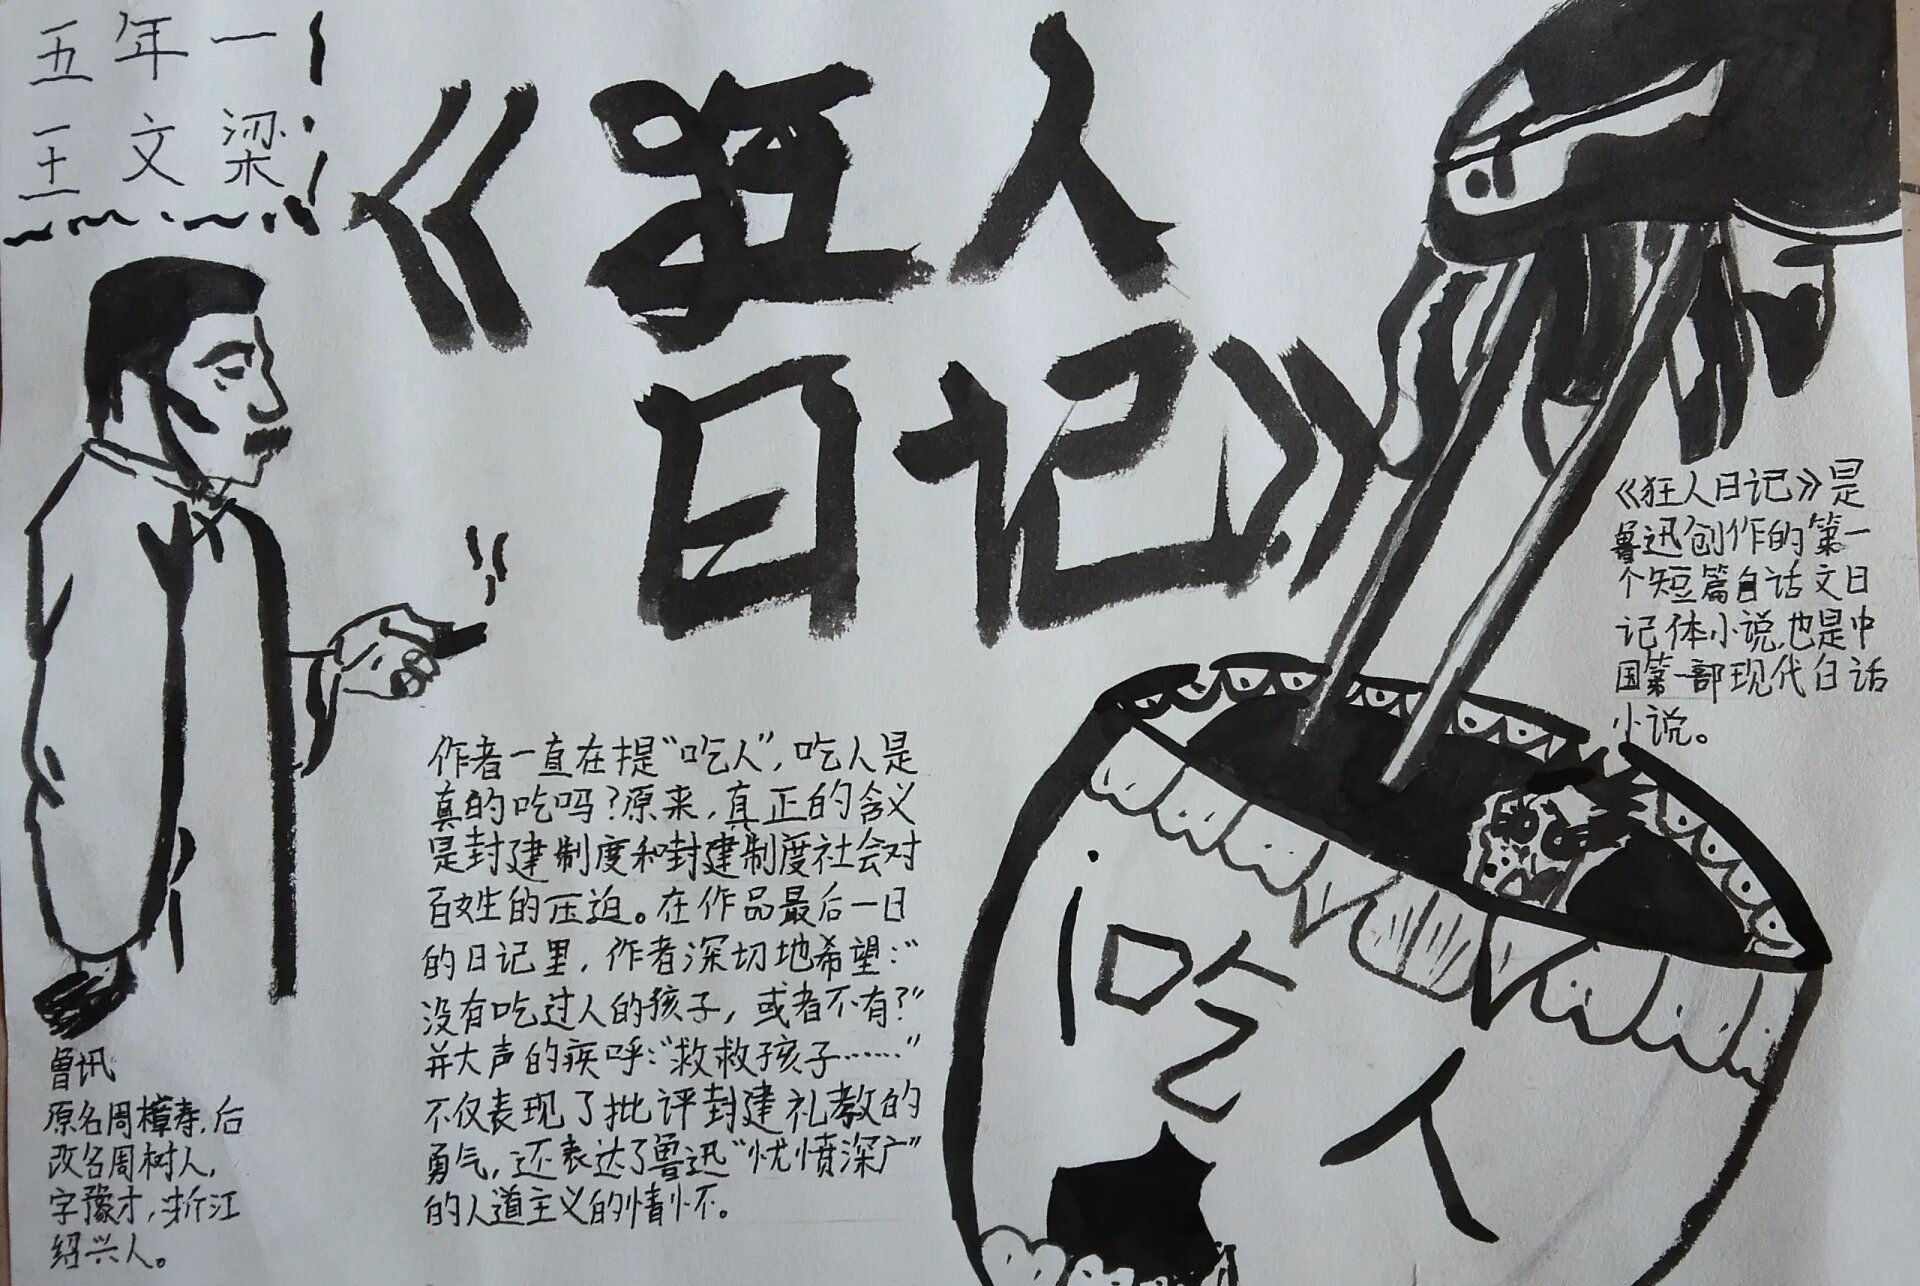 五年一
王文梁
《狂人
日记》
《狂人日记》是
鲁迅创作的第一
个短篇白话文日
记体小说,也是中
国第一部现代白话
小说。
作者一直在提“吃人”,吃人是
真的吃吗?原来,真正的含义
是封建制度和封建制度社会对
百姓的压迫。在作品最后一日
的日记里,作者深切地希望:“
没有吃过人的孩子,或者不有?”
并大声的疾呼:“救救孩子……”
不仅表现了批评封建礼教的
勇气,还表达了鲁迅“忧愤深广”
的人道主义的情怀。
鲁讯
原名周樟寿,后
改名周树人,
字豫才,浙江
绍兴人。
吃
人